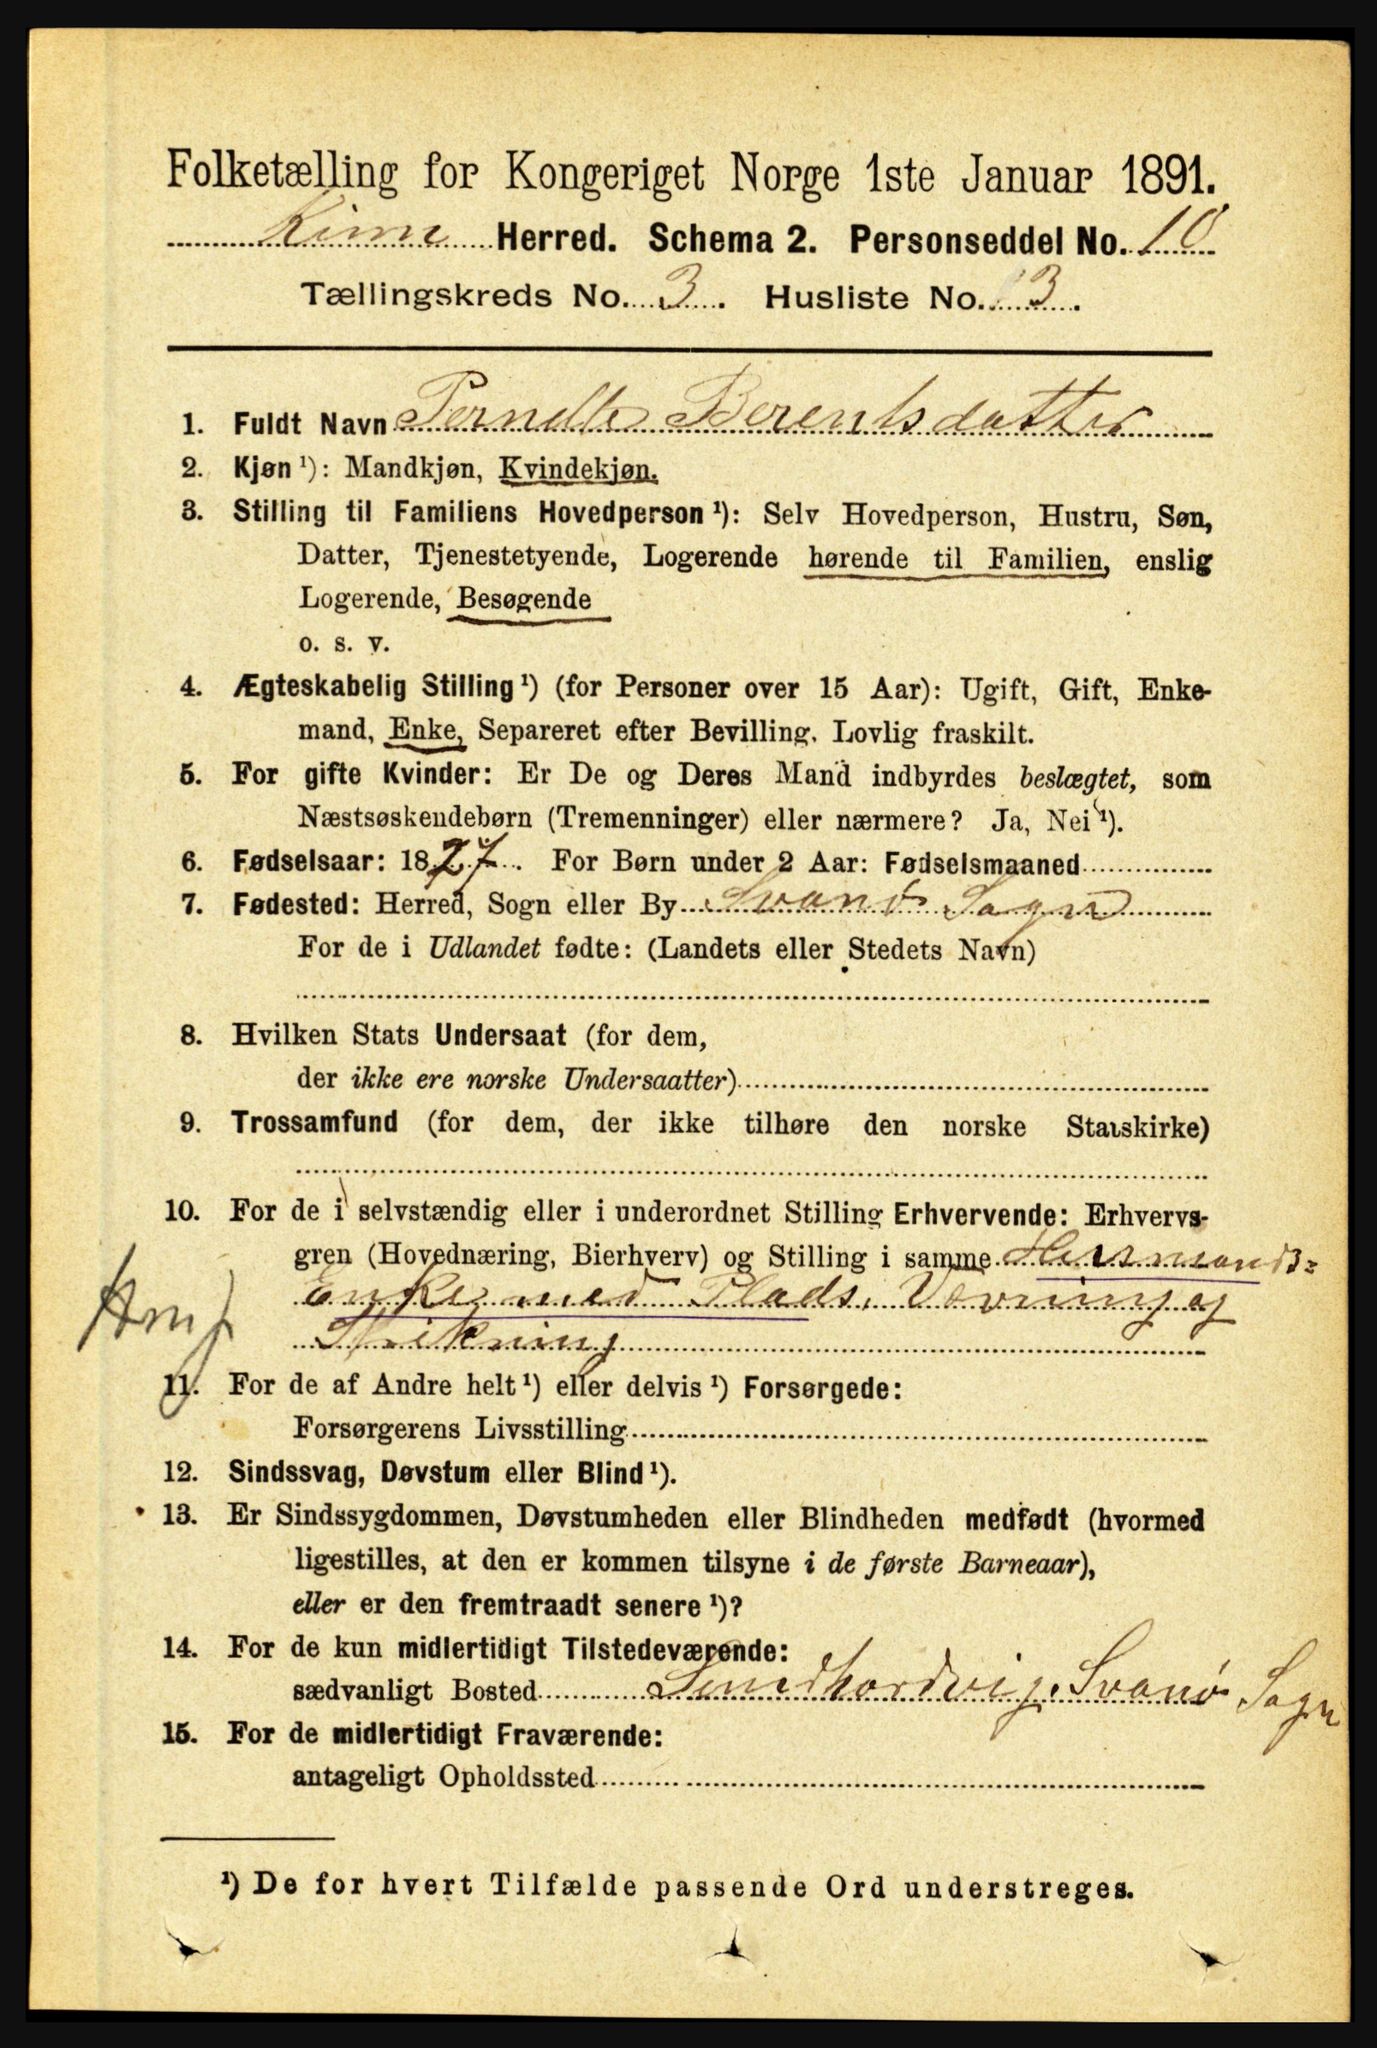 Folketælling for Kongeriget Norge 1ste Januar 1891.
Kinn Herred. Schema 2. Personseddel No. 10
Tællingskreds No. 3. Husliste No. 3.
1. Fuldt Navn Pernelle Berentsdatter
2. Kjøn ¹): Mandkjøn, Kvindekjøn.
3. Stilling til Familiens Hovedperson ¹): Selv Hovedperson, Hustru, Søn,
Datter, Tjenestetyende, Logerende hørende til Familien, enslig
Logerende, Besøgende
o. s. v.
4. Ægteskabelig Stilling ¹) (for Personer over 15 Aar): Ugift, Gift, Enke-
mand, Enke, Separeret efter Bevilling. Lovlig fraskilt.
5. For gifte Kvinder: Er De og Deres Mand indbyrdes beslægtet, som
Næstsøskendebørn (Tremenninger) eller nærmere? Ja, Nei ¹).
6. Fødselsaar: 1827. For Børn under 2 Aar: Fødselsmaaned
7. Fødested: Herred, Sogn eller By Svanø Sogn
For de i Udlandet fødte: (Landets eller Stedets Navn)
8. Hvilken Stats Undersaat (for dem,
der ikke ere norske Undersaatter)
9. Trossamfund (for dem, der ikke tilhøre den norske Statskirke)
10. For de i selvstændig eller i underordnet Stilling Erhvervende: Erhvervs-
gren (Hovednæring, Bierhverv) og Stilling i samme Husmands=
Enke med Plads, Vævning og
Strikning
11. For de af Andre helt ¹) eller delvis ¹) Forsørgede:
Forsørgerens Livsstilling
12. Sindssvag, Døvstum eller Blind ¹).
13. Er Sindssygdommen, Døvstumheden eller Blindheden medfødt (hvormed
ligestilles, at den er kommen tilsyne i de første Barneaar),
eller er den fremtraadt senere ¹)?
14. For de kun midlertidigt Tilstedeværende:
sædvanligt Bosted Svanø Sogn
15. For de midlertidigt Fraværende:
antageligt Opholdssted
¹) De for hvert Tilfælde passende Ord understreges.